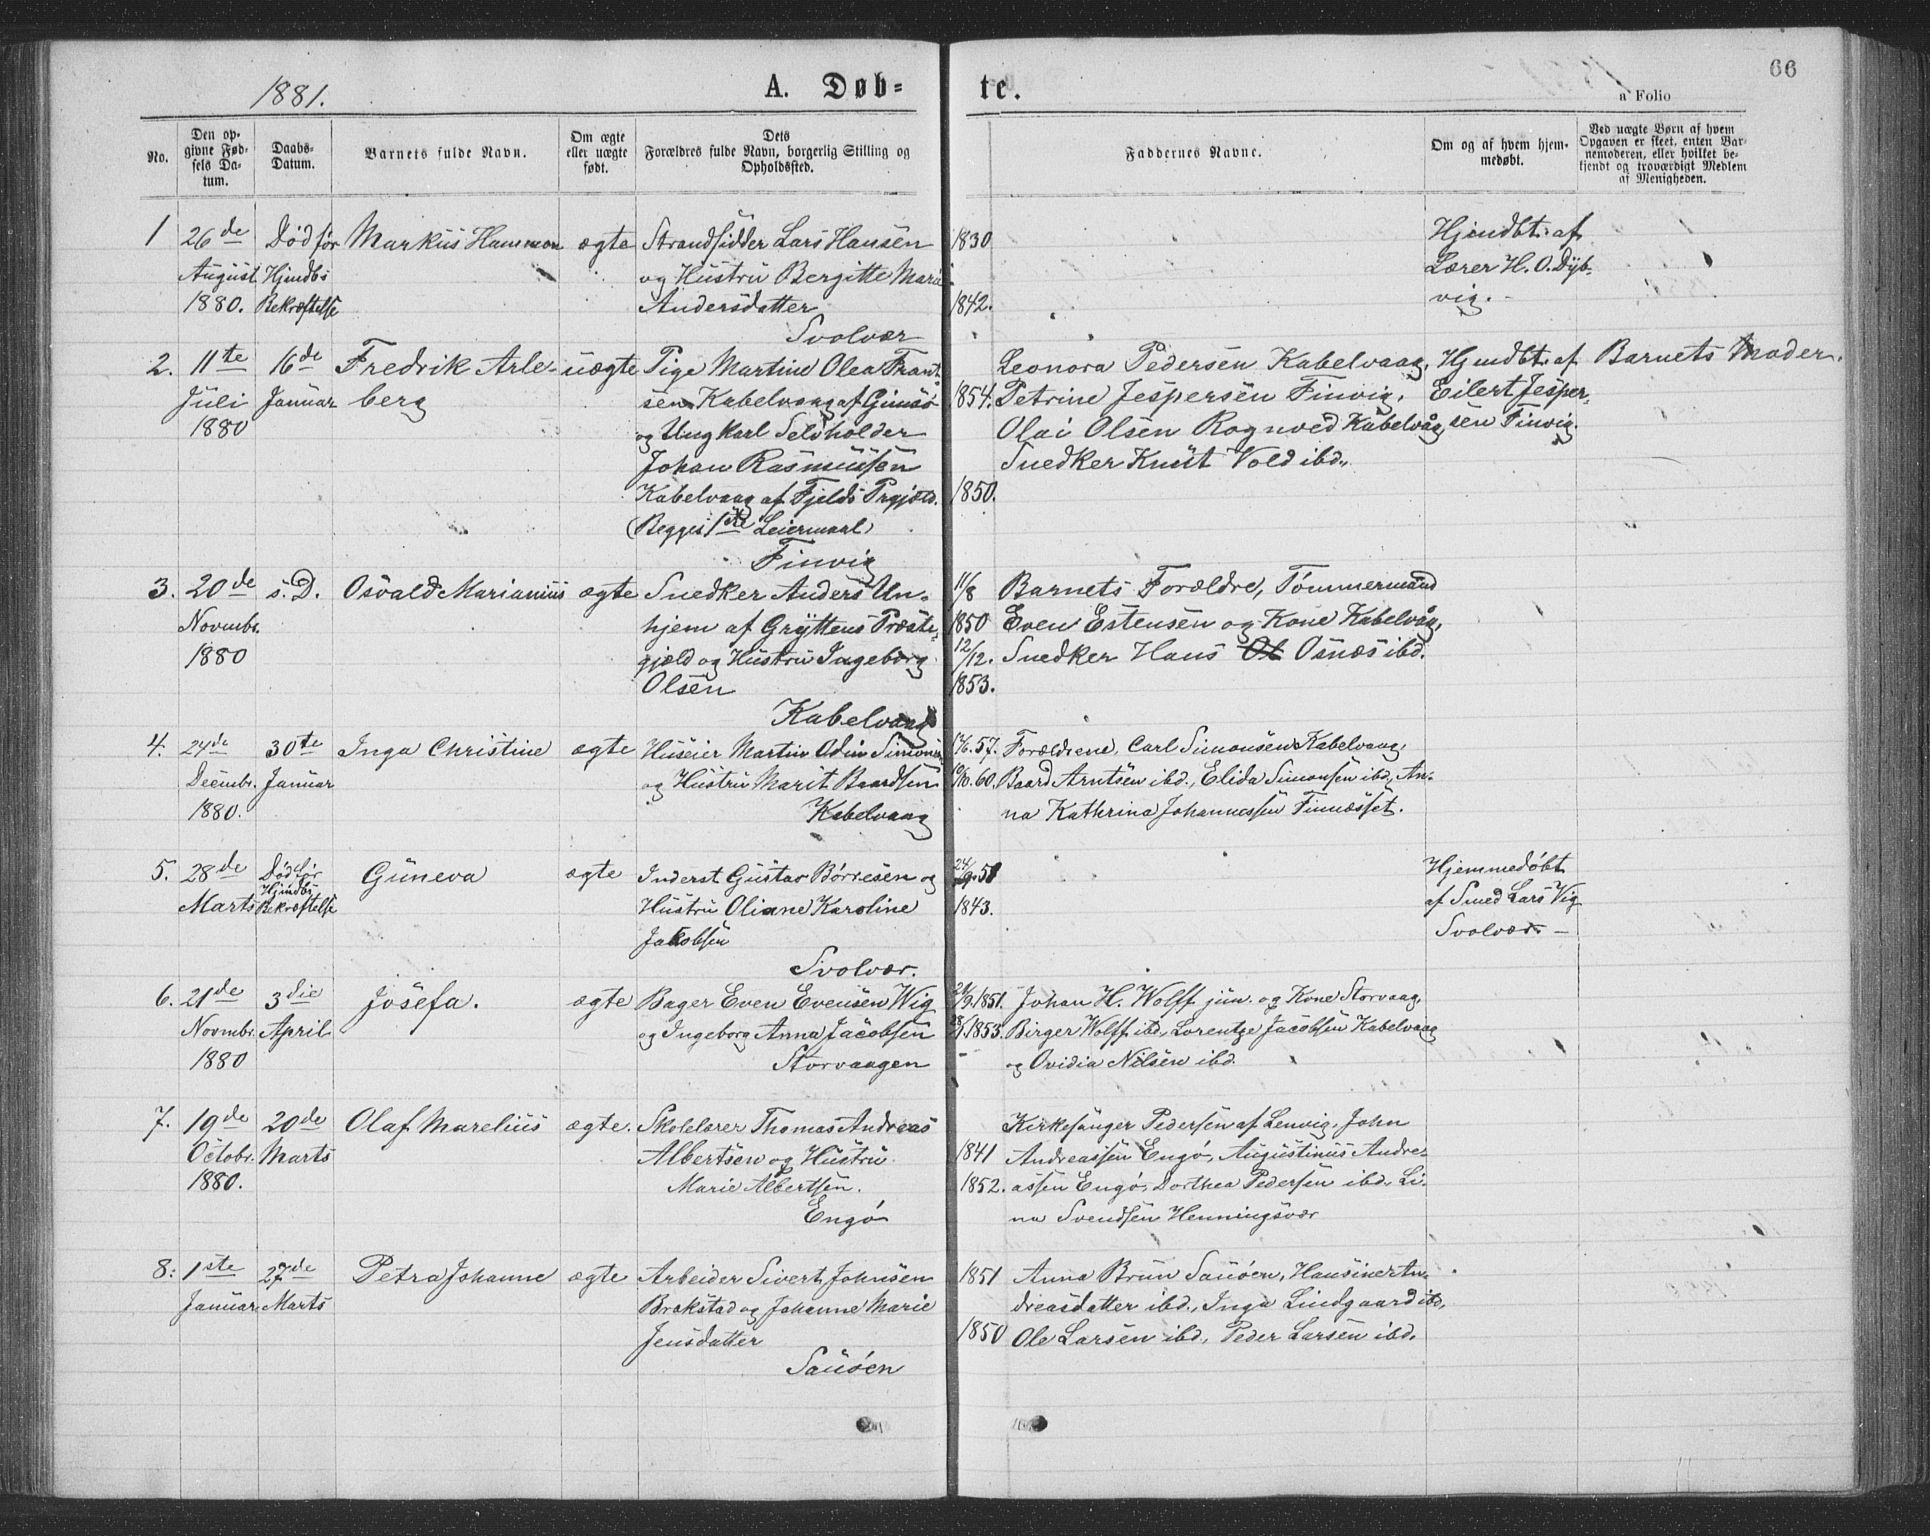 66
1881.
A. Døb-
te.
a Folio
No.
Den op-
givne Fød-
sels Da-
tum.
Daabs-
Datum.
Barnets fulde Navn.
Om ægte
eller uægte
født.
Dets
Forældres fulde Navn, borgerlig Stilling og
Opholdssted.
Faddernes Navne.
Om og af hvem hjem-
medøbt.
Ved uægte Børn af hvem
Opgaven er skeet, enten Bar-
nemoderen, eller hvilket be-
kjendt og troværdigt Medlem
af Menigheden.
1
26de
August
1880.
Død før
Hjmdbs
Bekræftelse
Markus Hammon
ægte
Strandsidder Lars Hansen
og Hustru Bergitte Marie
Andersdatter
Svolvær
1830
1842.
Hjmdbt. af
Lærer H. O. Dyb-
vig.
2.
11te
Juli
1880
16de
Januar
Fredrik Arle-
berg
uægte
Pige Martine Olea Frant
sen Kabelvaag af Gimsö
og Ungkarl Selvholder
Johan Rasmussen
Kabelvaag af Fjelds Prgjæld.
(Begges 1ste Leiermaal)
Finvig
1854.
1850.
Leonora Pedersen Kabelvaag,
Petrine Jespersen Finvig,
Olai Olsen Rognved Kabelvåg,
Snedker Knut Vold ibd.
Hjmdbt. af
Eilert Jesper-
sen Finvig.
Barnets Moder.
3.
20de
Novmbr.
1880
s. D.
Osvald Marianius
ægte
Snedker Anders Un-
hjem af Gryttens Præste-
gjæld og Hustru Ingeborg
Olsen
Kabelvaag
11/8
1850
12/12.
1853.
Barnets Forældre, Tømmermand
Even Estensen og Kone Kabelvåg,
Snedker Hans Ol Osnæs ibd.
4.
24de
Decmbr.
1880.
30te
Januar
Inga Christine
ægte
Huseier Martin Odin Simonsen
og Hustru Marit Baardsen
Kabelvaag
57.
60.
Forældrene, Carl Simonsen Kabelvaag,
Baard Arntsen ibd., Elida Simonsen ibd., An-
na Kathrina Johannessen Finnæsset.
5.
28de
Marts
Død før
Hjmdbs
Bekræftelse
Guneva
ægte
Inderst Gustav Børresen og
Hustru Oliane Karoline
Jakobsen
Svolvær.
51
1843.
Hjemmedøbt
af Smed Lars Vig
Svolvær. -
6.
21de
Novmbr.
1880
3die
April
Josefa.
ægte
Bager Even Evensen Wig
og Ingeborg Anna Jacobsen
Storvaagen
21/9. 1851.
1853.
Johan H. Wolff jun. og Kone Storvaag,
Birger Wolff ibd., Lorentze Jacobsen Kabelvaag
og Ovidia Nilsen ibd.
7.
19de
Octobr.
1880.
20de
Marts
Olaf Marelius
ægte.
Skolelærer Thomas Andreas
Albertsen og Hustru
Marie Albertsen.
Engø
1841
1852.
Kirkesanger Pedersen af Lenvig, John
Andreassen Engø, Augustinus Andre-
assen Engø, Dorthea Pedersen ibd. Li-
na Svendsen Henningsvær
8.
1ste
Januar
27de
Marts
Petra Johanne
ægte
Arbeider Sivert Johnsen
Brakstad og Johanne Marie
Jensdatter
Sauøen
1851
1850
Anna Brun Sauøen, Hansine An-
dreasdatter ibd., Inga Lindgaard ibd,
Ole Larsen ibd, Peder Larsen ibd.